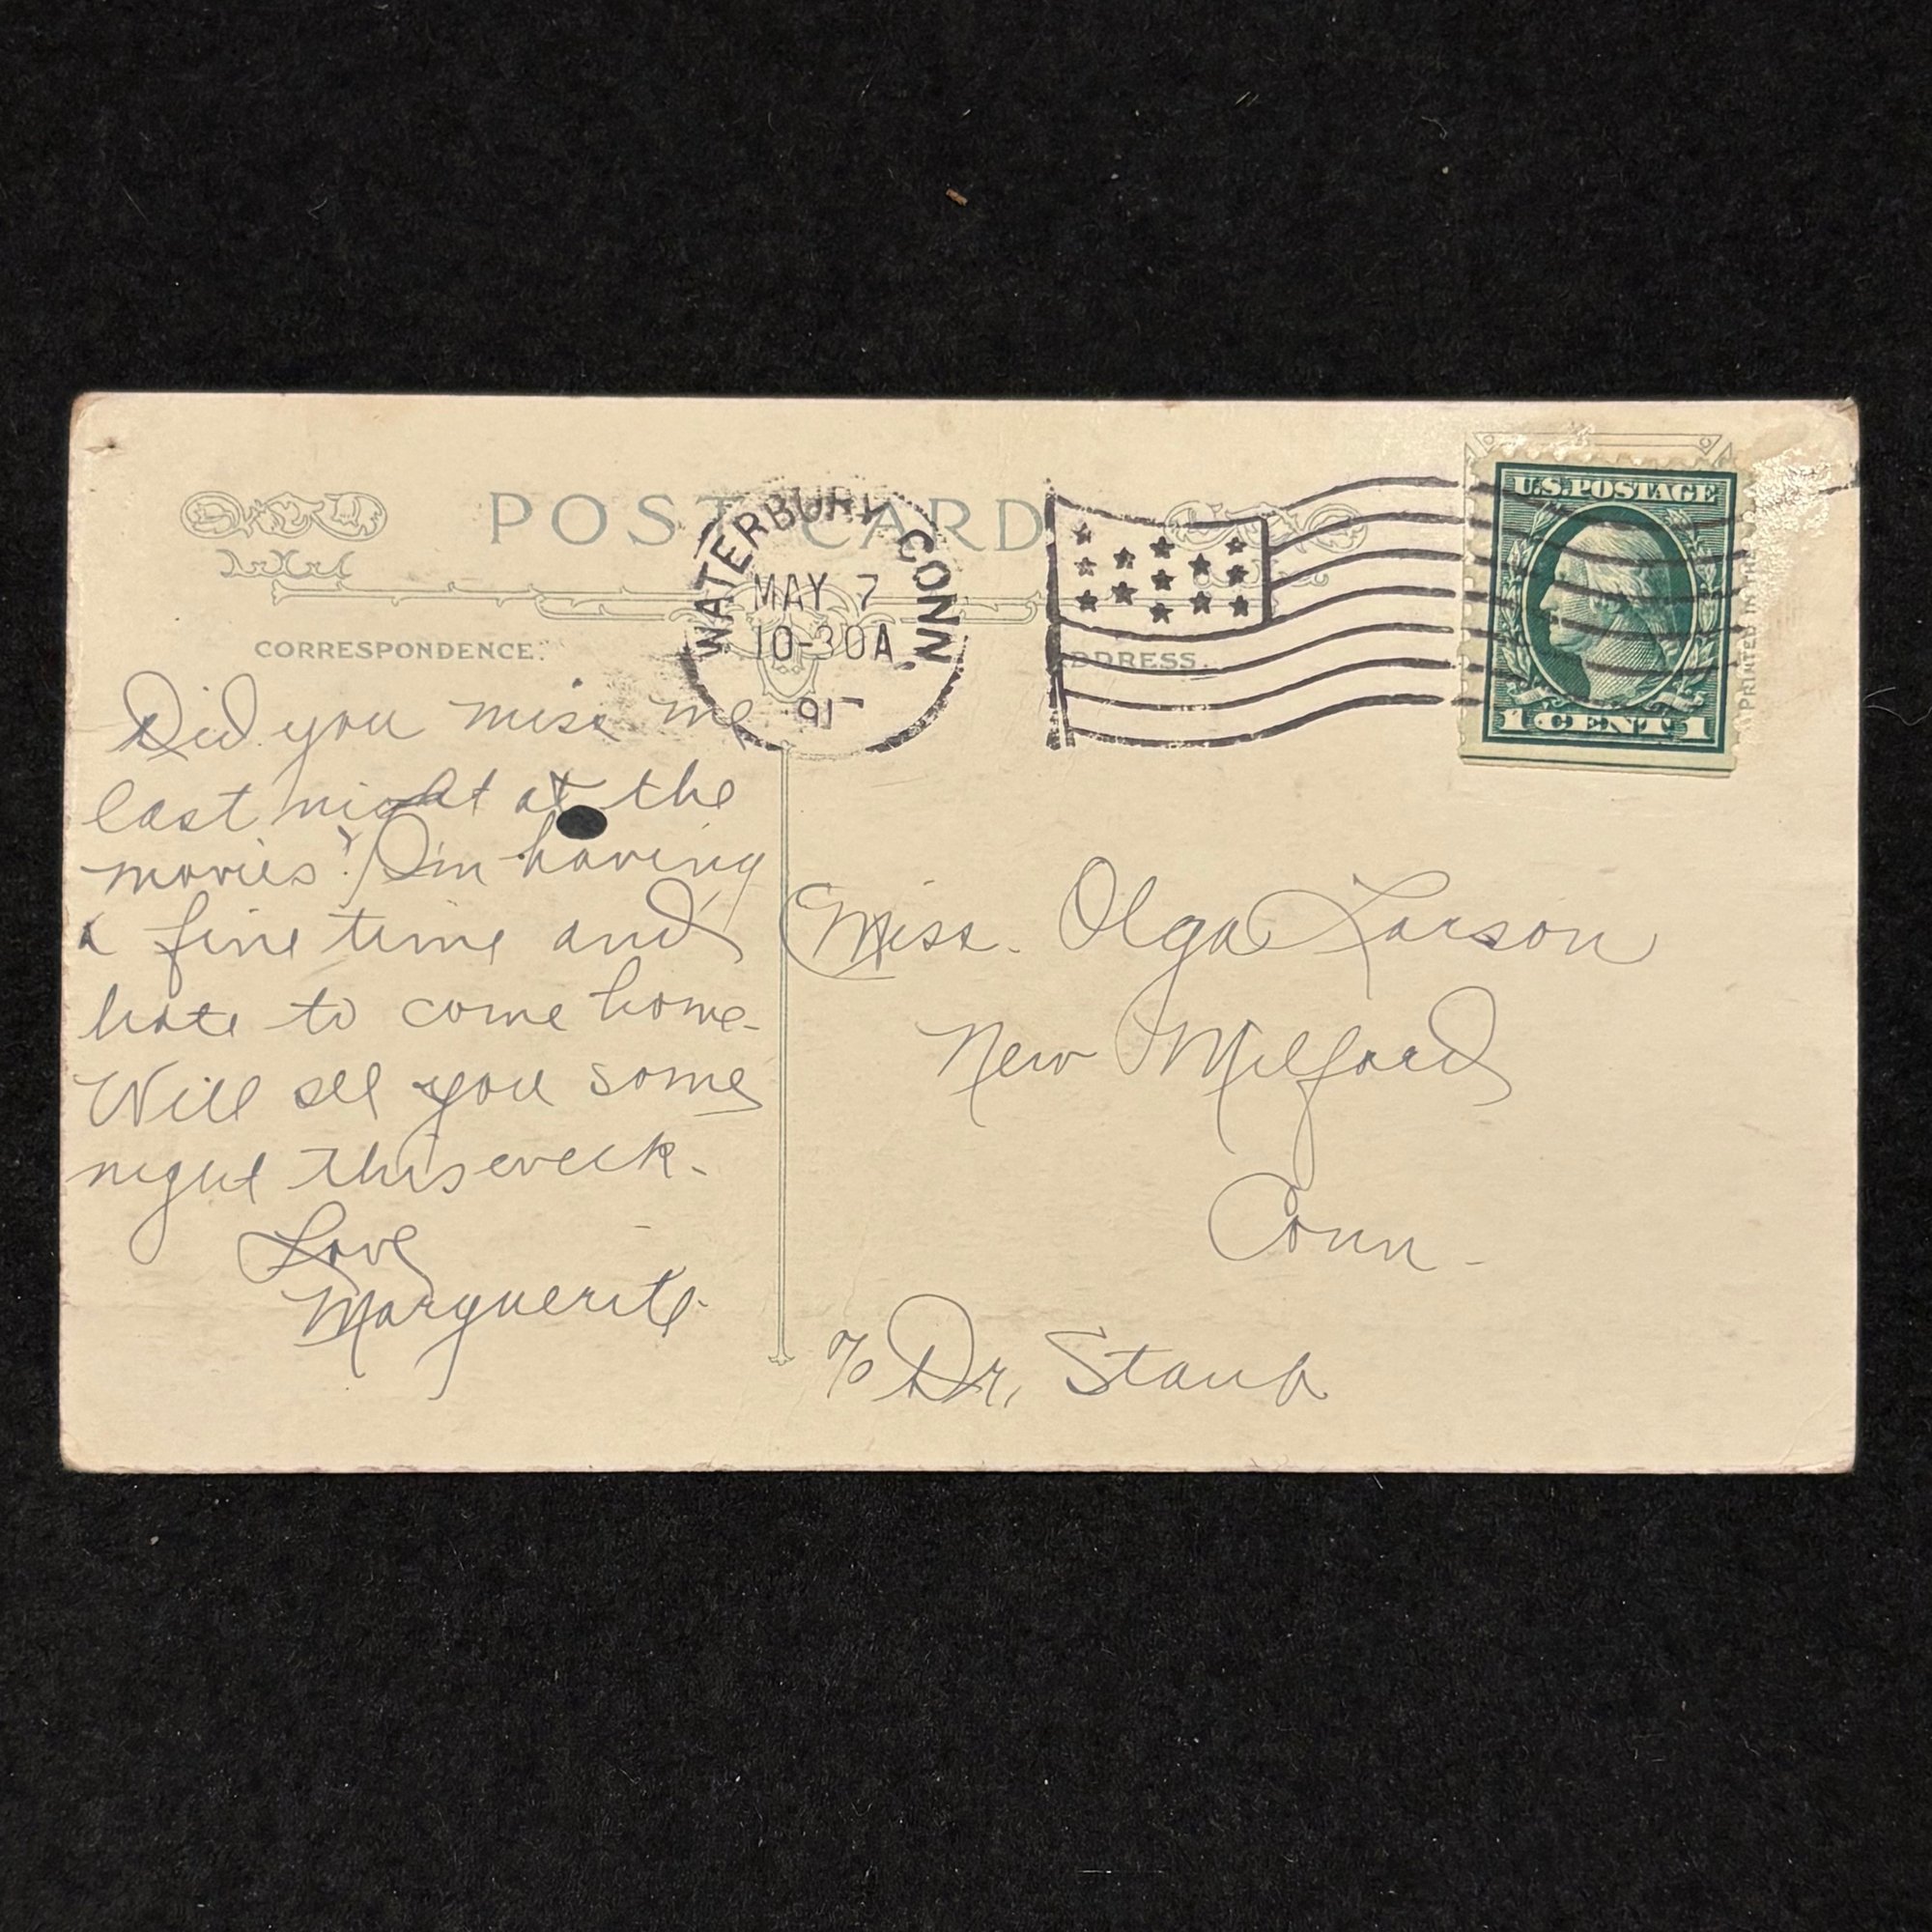 POST CARD
WATERBURY CONN
MAY 7
10-30A
U.S.POSTAGE
1 CENT 1
PRINTED IN THE
CORRESPONDENCE.
ADDRESS.
Did you miss me
last night at the
movies? I'm having
a fine time and
hate to come home.
Will see you some
night this week.
Love
Marguerite.
Miss. Olga Larson
New Milford
Conn.
c/o Dr. Staub